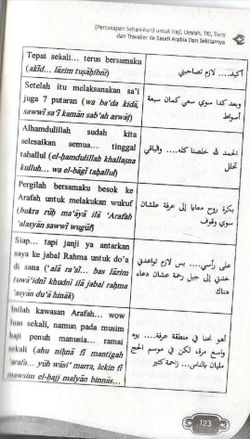 (Percakapan Sehari-hari) untuk Haji, Umrah, TKI, Turis
dan Traveller ke Saudi Arabia Dan Sekitarnya
Tepat sekali... terus bersamaku
(akīd... lāzim tuṣāḥibnī)
أكيد.... لازم تصاحبني
Setelah itu melaksanakan sa'i
juga 7 putaran (wa ba'da kidā,
sawwī sa'ī kamān sab'ah aswāṭ)
وبعد كدا سوي سعي كمان سبعة
أصواط
Alhamdulillah sudah kita
selesaikan semua... tinggal
tahallul (el-ḥamdulillah khallaṣna
kulluh... wa el-bāgī taḥallul)
الحمد لله خلصنا كله.... والباقي
تحلل
Pergilah bersamaku besok ke
Arafah untuk melakukan wukuf
(bukra rūḥ ma'āyā ilā 'Arafah
'alasyān sawwī wugūf)
بكرة روح معايا إلى عرفة علشان
سوي وقوف
Siap... tapi janji ya antarkan
saya ke jabal Rahma untuk do'a
di sana ('alā ra'sī... bas lāzim
tuwā'idnī khudnī ilā jabal raḥma
'asyān du'ā hināk)
على رأسي.... بس لازم تواعدني
خدني إلى جبل رحمة عشان دعاء
هناك
Inilah kawasan Arafah... wow
luas sekali, namun pada musim
haji penuh manusia... ramai
sekali (ahu niḥnā fī mantigah
'arafa... yūh wāsi' marra, lekin fī
mawsim el-ḥajj malyān binnās...
أهو نحنا في منطقة عرفة.... يوه
واسع مرة لكن في موسم الحج
مليان بالناس... زحمة كثير
123